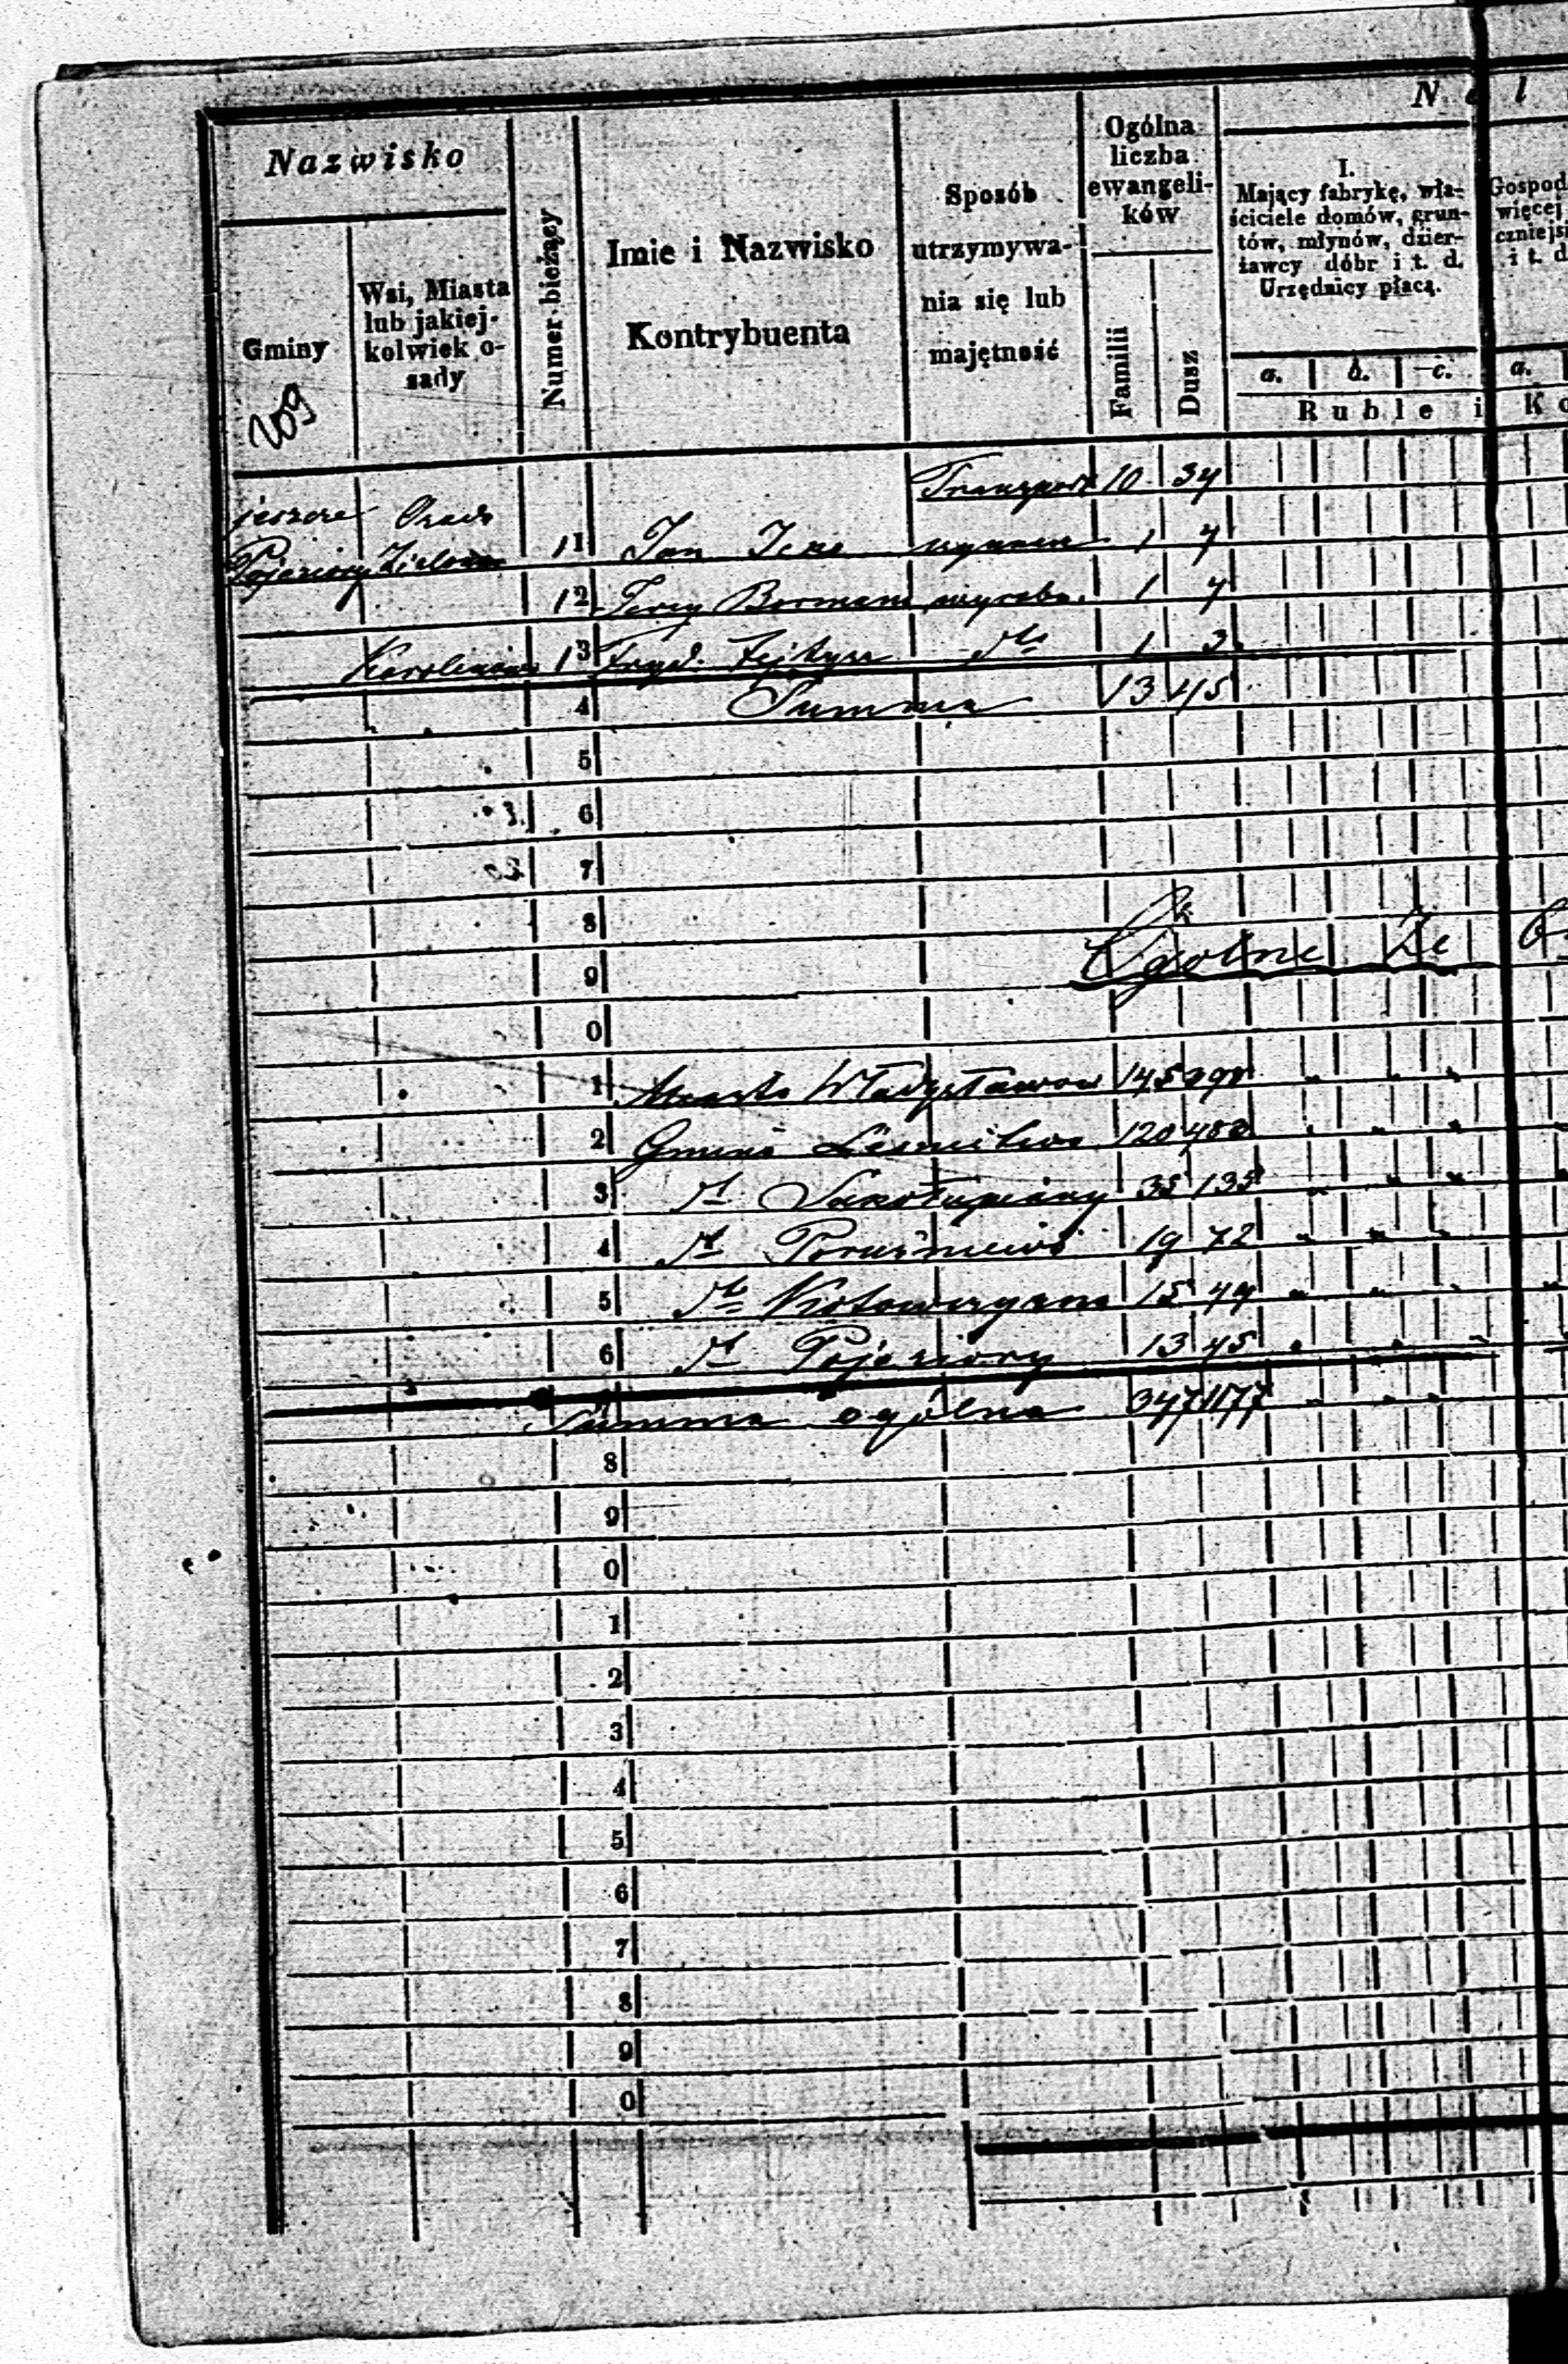 Nazwisko
Gminy
Wsi, Miasta
lub jakiej-
kolwiek o-
sady
Numer bieżący
Imie i Nazwisko
Kontrybuenta
Sposób
utrzymywa-
nia się lub
majętność
Ogólna
liczba
ewangeli-
ków
Familii
Dusz
N a l
I.
Mający fabrykę, wła-
ściciele domów, grun-
tów, młynów, dzier-
żawcy dóbr i t. d.
Urzędnicy płacą.
a. b. c.
Ruble i Ko
Gospod
więcej
czniejsi
i t. d
a.
209
Transport 10 34
jeszcze
Pojeziory 11 Jan 1 4
12 Jerzy Borman wyrobn. 1 4
Karolinów 13 Fryd. dto 1 3
4 Summa 13 45
5
6
7
8
9 Ogólne Ze
0
1 Miasto Władysławow 145
2 Gmina Leśnictwo 120
3 dt 35 135
4 dt 19 72
5 dto 15 44
6 dt Pojeziory 13 45
Summa ogólna 347 1177
8
9
0
1
2
3
4
5
6
7
8
9
0